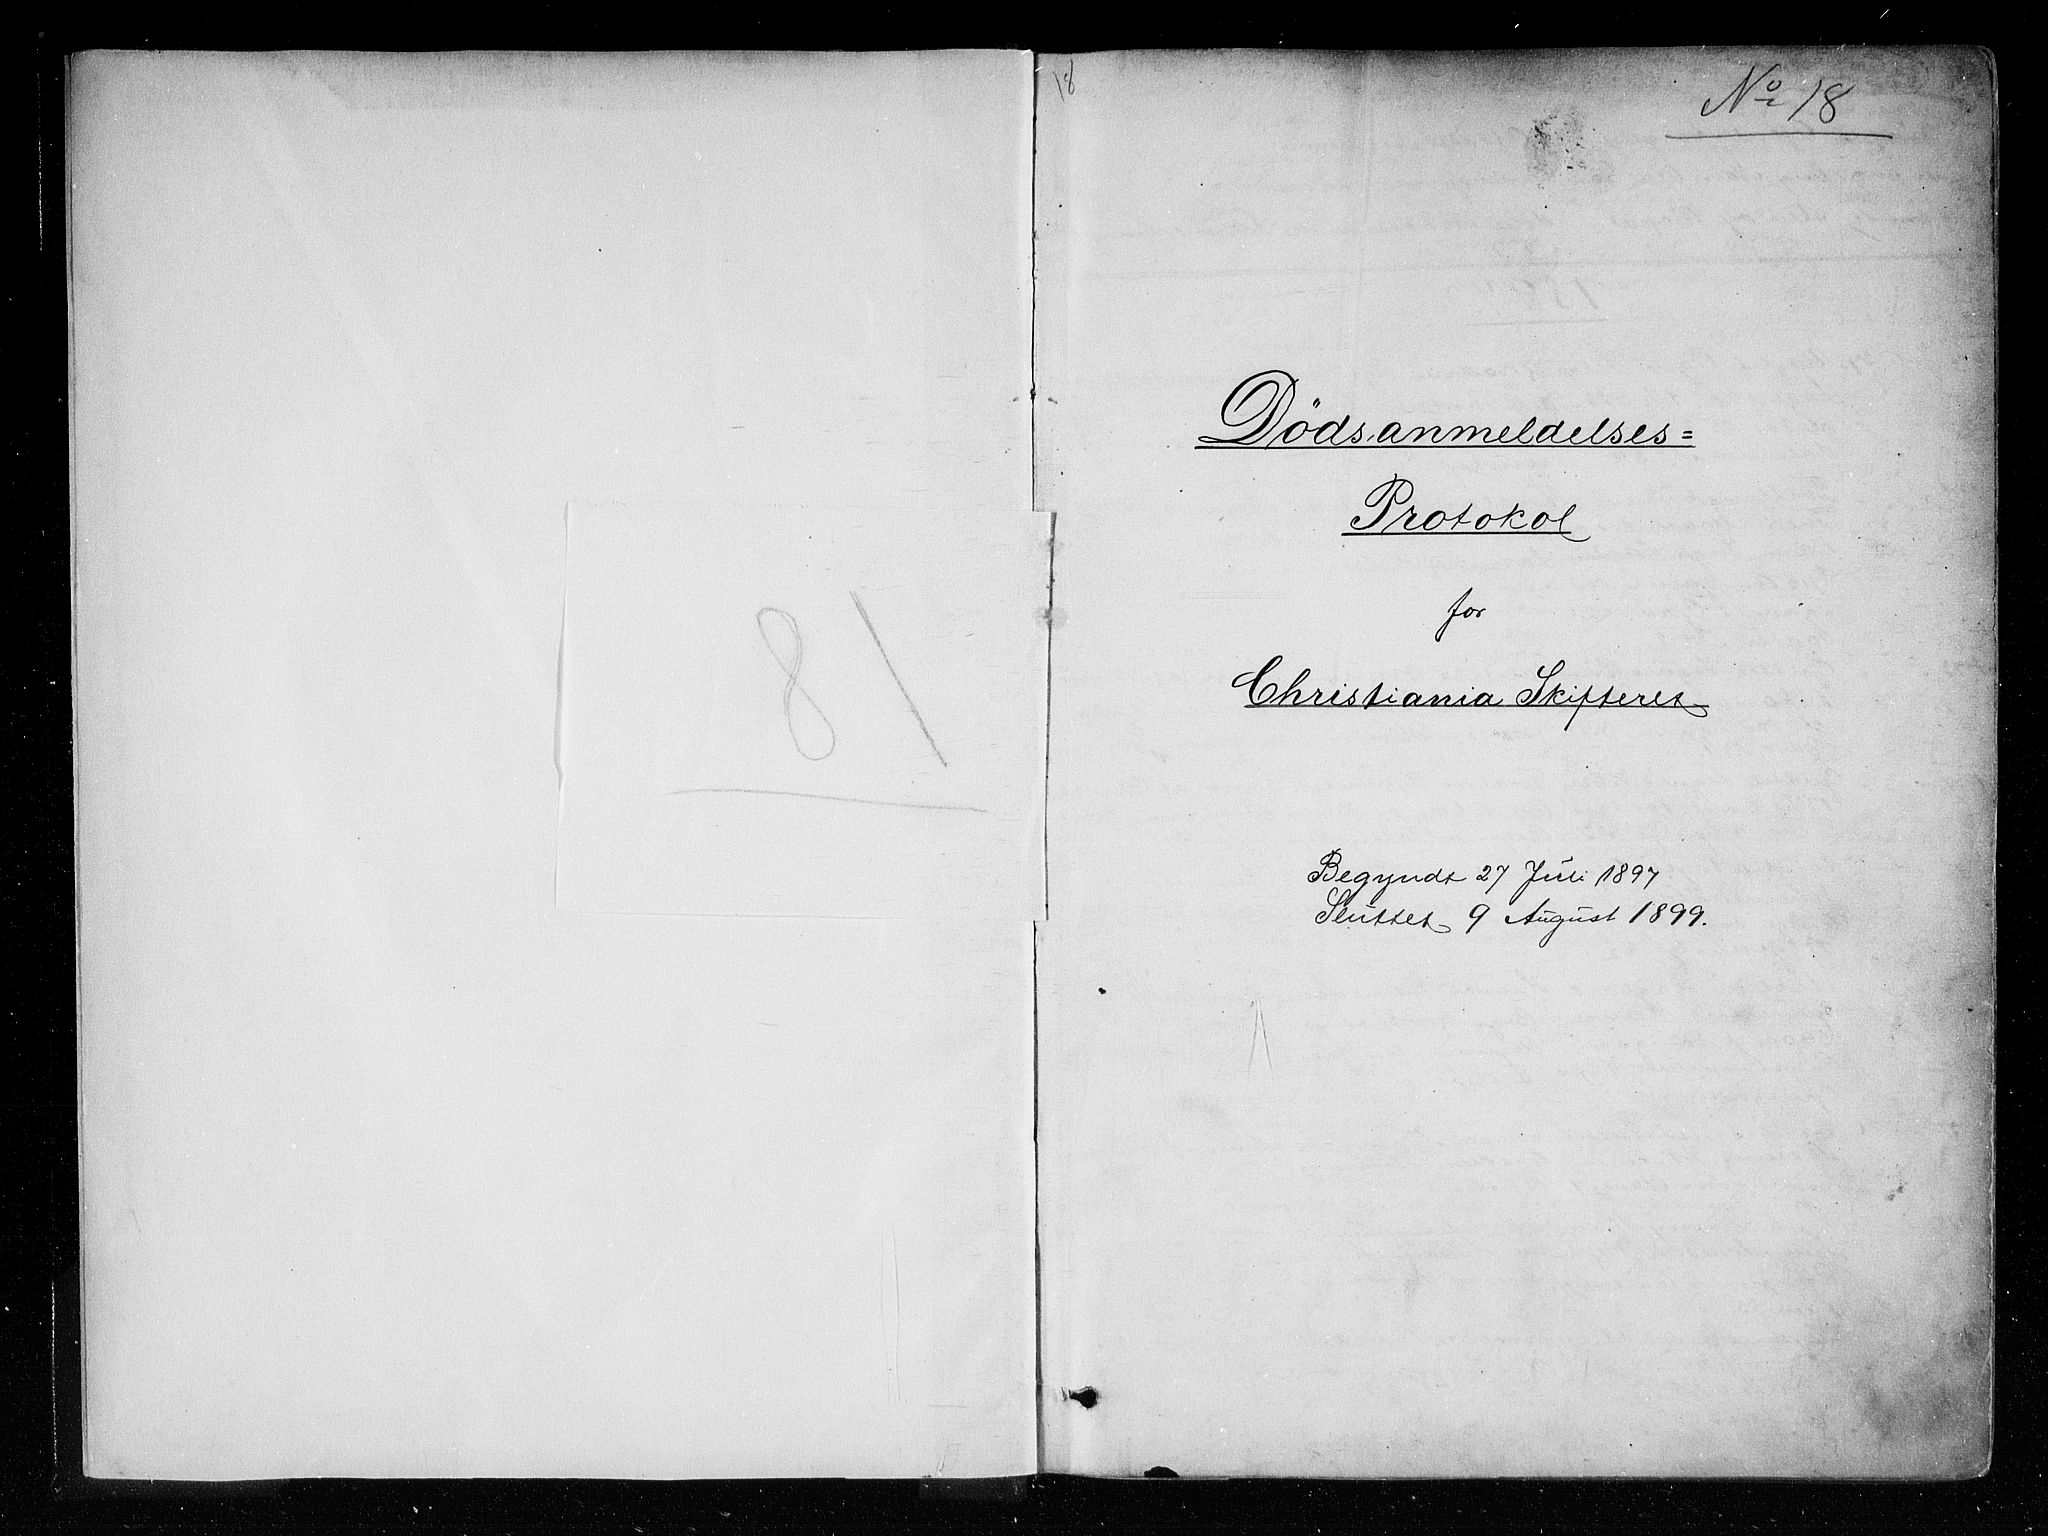 18
18
No 18
Dödsanmeldelses=
Protokol
for
Christiania Skifteret
Begyndt 27 Juli 1897
Sluttet 9 August 1899.